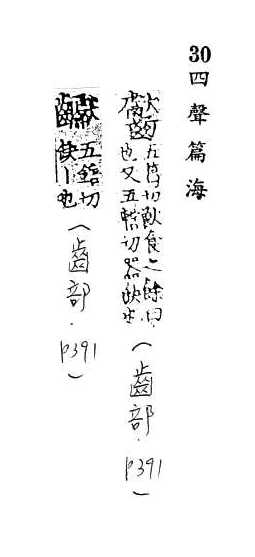 30四聲篇海
五葛切獸食之餘曰
也又五轄切器缺也
(齒部.p391)
五鎋切
缺丨也
(齒部.p391)